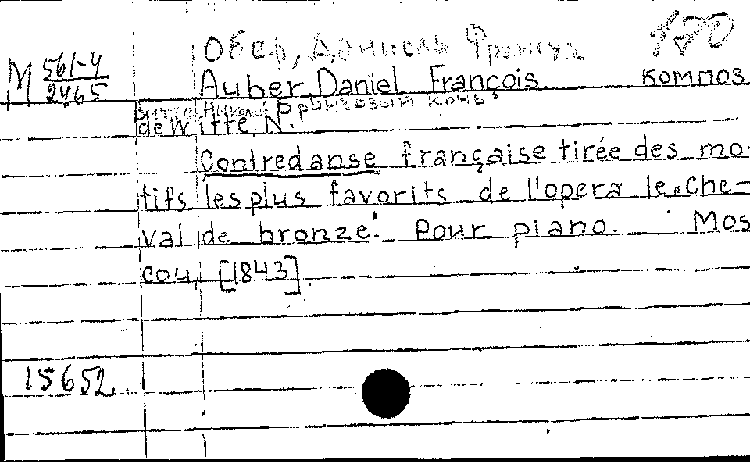 Обер, Даниель Франсуа 170
М 561-4/2465
Auber, Daniel François композ
de Witte, N.
Contredanse française tirée des mo-
tifs les plus favorits de l'opera le „Che-
val de bronze". Pour piano. Mos
cou, [1843].
15652